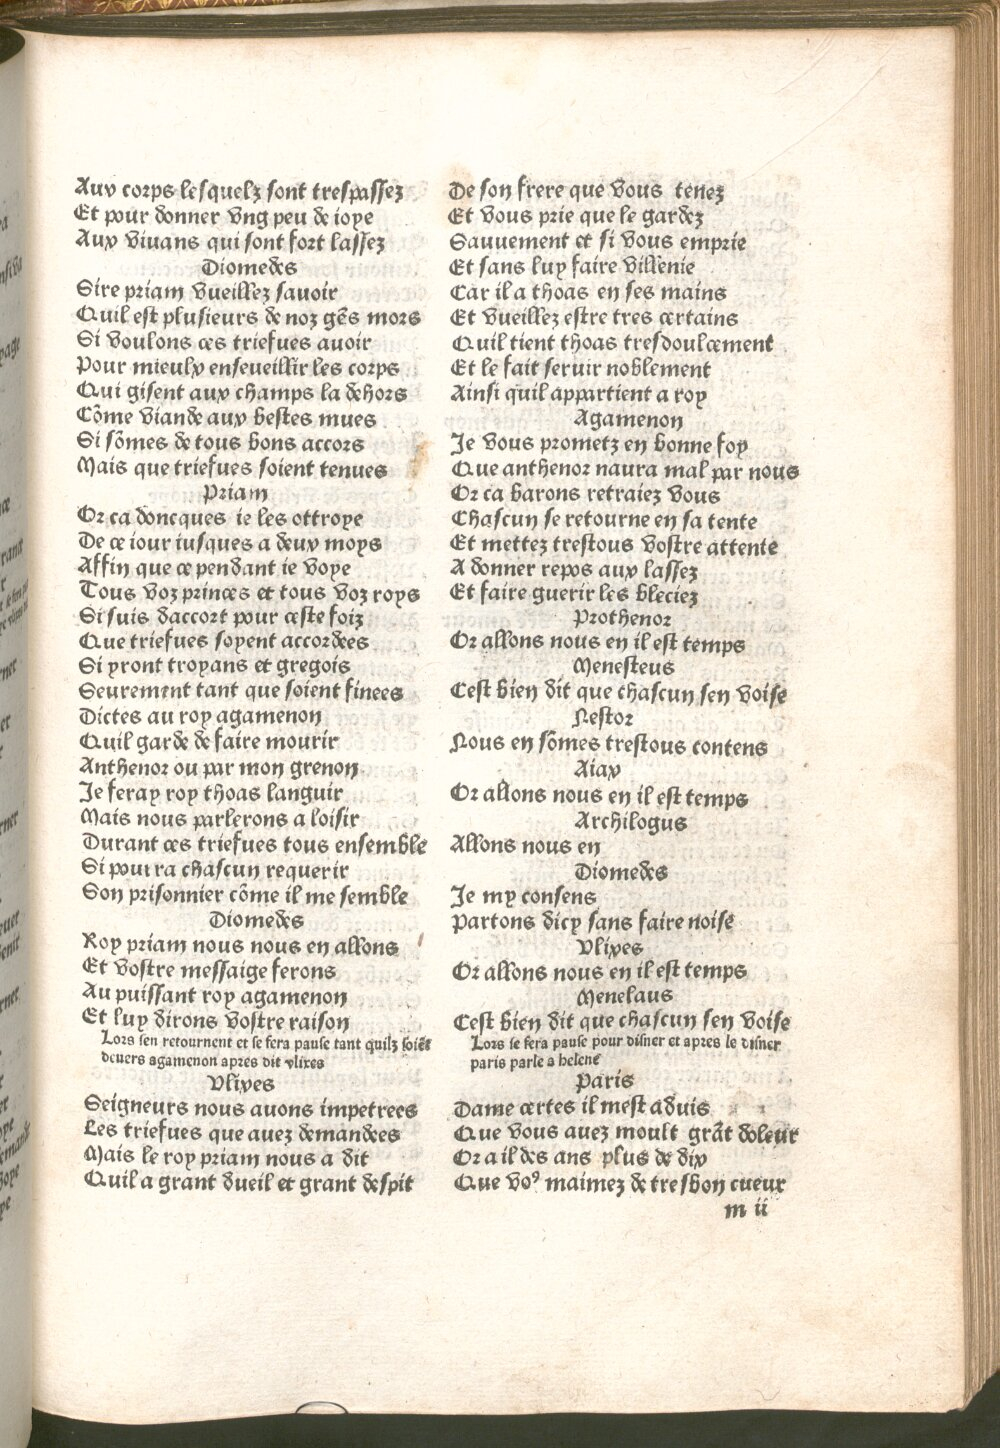 Aux corps lesquelz sont trespassez
Et pour donner vng peu de ioye
Aux viuans qui sont fort lassez
Diomedes
Sire priam vueillez sauoir
Quil est plusieurs de noz gẽs mors
Si voulons ces triefues auoir
Pour mieulx enseueillir les corps
Qui gisent aux champs la dehors
Cõme viande aux bestes mues
Si sõmes de tous bons accors
Mais que triefues soient tenues
Priam
Or ca doncques ie les ottroye
De ce iour iusques a deux moys
Affin que ce pendant ie voye
Tous voz princes et tous voz roys
Si suis daccort pour ceste foiz
Que triefues soyent accordees
Si yront troyans et gregois
Seurement tant que soient finees
Dictes au roy agamenon
Quil garde de faire mourir
Anthenor ou par mon grenon
Je feray roy thoas languir
Mais nous parlerons a loisir
Durant ces triefues tous ensemble
Si pourra chascun requerir
Son prisonnier cõme il me semble
Diomedes
Roy priam nous nous en allons
Et vostre messaige ferons
Au puissant roy agamenon
Et luy dirons vostre raison
Lors sen retournent et se fera pause tant quilz soiẽt
deuers agamenon apres dit vlixes
Vlixes
Seigneurs nous auons impetrees
Les triefues que auez demandees
Mais le roy priam nous a dit
Quil a grant dueil et grant despit
De son frere que vous tenez
Et vous prie que le gardez
Sauuement et si vous emprie
Et sans luy faire villenie
Car il a thoas en ses mains
Et vueillez estre tres certains
Quil tient thoas tresdoulcement
Et le fait seruir noblement
Ainsi quil appartient a roy
Agamenon
Je vous prometz en bonne foy
Que anthenor naura mal par nous
Or ca barons retraiez vous
Chascun se retourne en sa tente
Et mettez trestous vostre attente
A donner repos aux lassez
Et faire guerir les bleciez
Prothenor
Or allons nous en il est temps
Menesteus
Cest bien dit que chascun sen voise
Nestor
Nous en sõmes trestous contens
Aiax
Or allons nous en il est temps
Archilogus
Allons nous en
Diomedes
Je my consens
Partons dicy sans faire noise
Vlixes
Or allons nous en il est temps
Menelaus
Cest bien dit que chascun sen voise
Lors se fera pause pour disner et apres le disner
paris parle a helene
Paris
Dame certes il mest aduis
Que vous auez moult grãt doleur
Or a il des ans plus de dix
Que voꝰ maimez de tresbon cueur
m ii